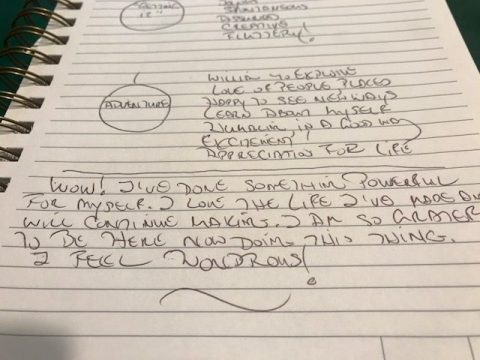 CREATIVE
FLUTTERY!
ADVENTURE
WILLIN TO EXPLORE
LOVE OF PEOPLE PLACES
HAPPY TO SEE NEW WAYS
LEARN ABOUT MYSELF
IN A GOOD WAY
EXCITEMENT
APPRECIATION FOR LIFE
WOW! I'VE DONE SOMETHIN POWERFUL
FOR MYSELF. I LOVE THE LIFE I'VE MADE
WILL CONTINUE MAKING. I AM SO GRATEF
TO BE HERE NOW DOING THIS THING.
I FEEL WONDROUS!